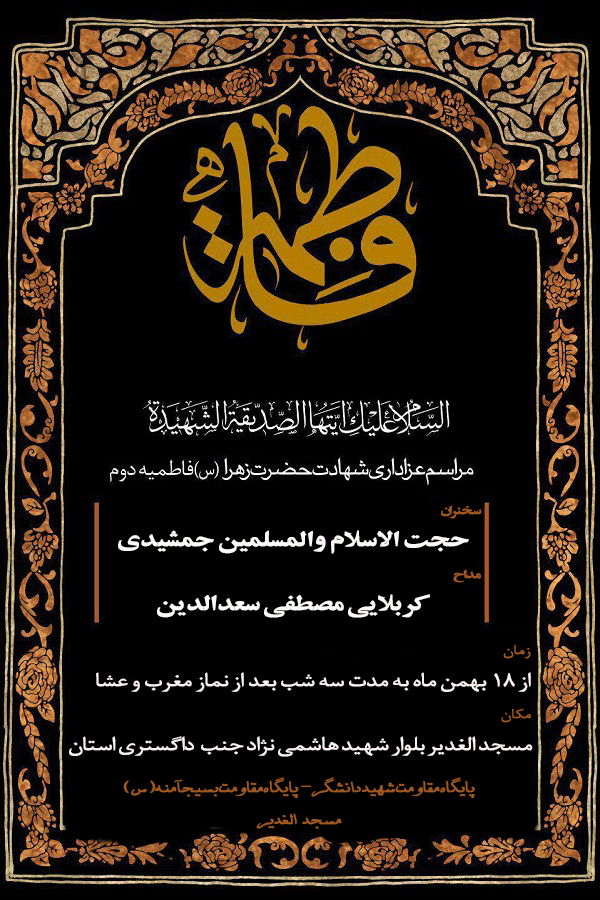 فاطمة
السلام عليك ايتها الصديقة الشهيدة
مراسم عزاداری شهادت حضرت زهرا (س) فاطمیه دوم
سخنران
حجت الاسلام والمسلمین جمشیدی
مداح
کربلایی مصطفی سعدالدین
زمان
از ۱۸ بهمن ماه به مدت سه شب بعد از نماز مغرب و عشا
مکان
مسجد الغدیر بلوار شهید هاشمی نژاد جنب دادگستری استان
پایگاه مقاومت شهید دانشگر - پایگاه مقاومت بسیج آمنه (س)
مسجد الغدیر